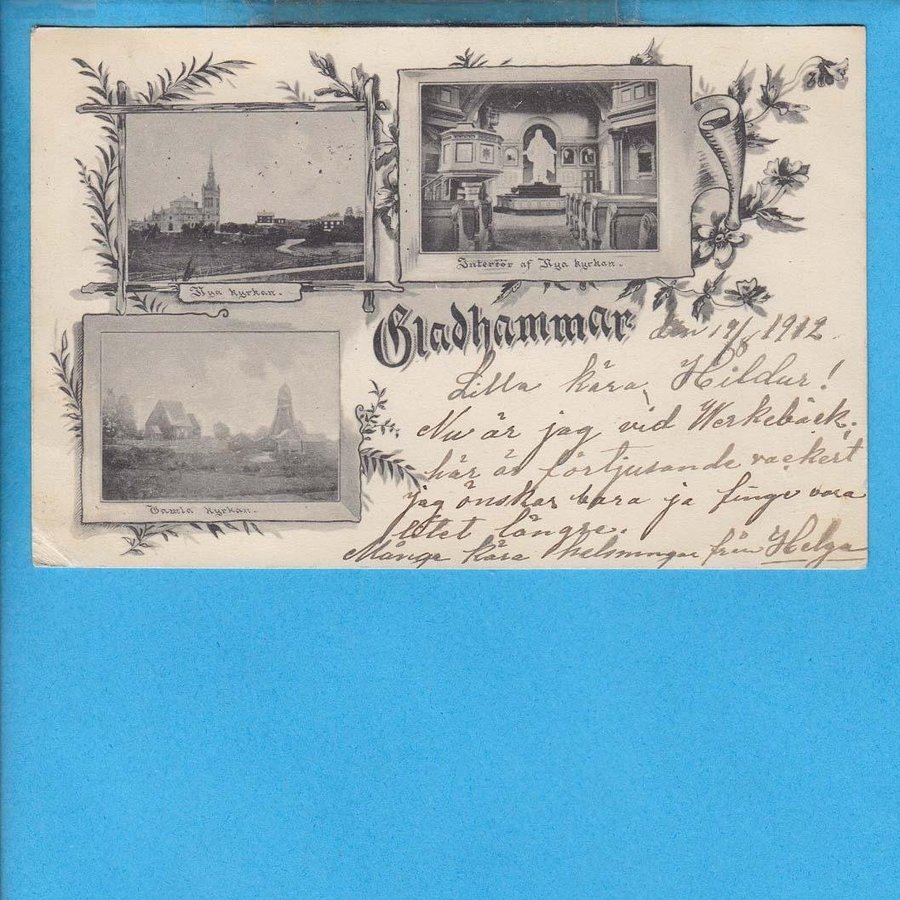 Nya kyrkan.
Interiör af Nya kyrkan.
Gamla kyrkan.
Gladhammar
den 19/8 1912
Lilla kära Hildur!
Nu är jag vid Werkebäck,
här är förtjusande vackert
jag önskar bara ja finge vara
litet längre.
Många kära helsningar från Helga